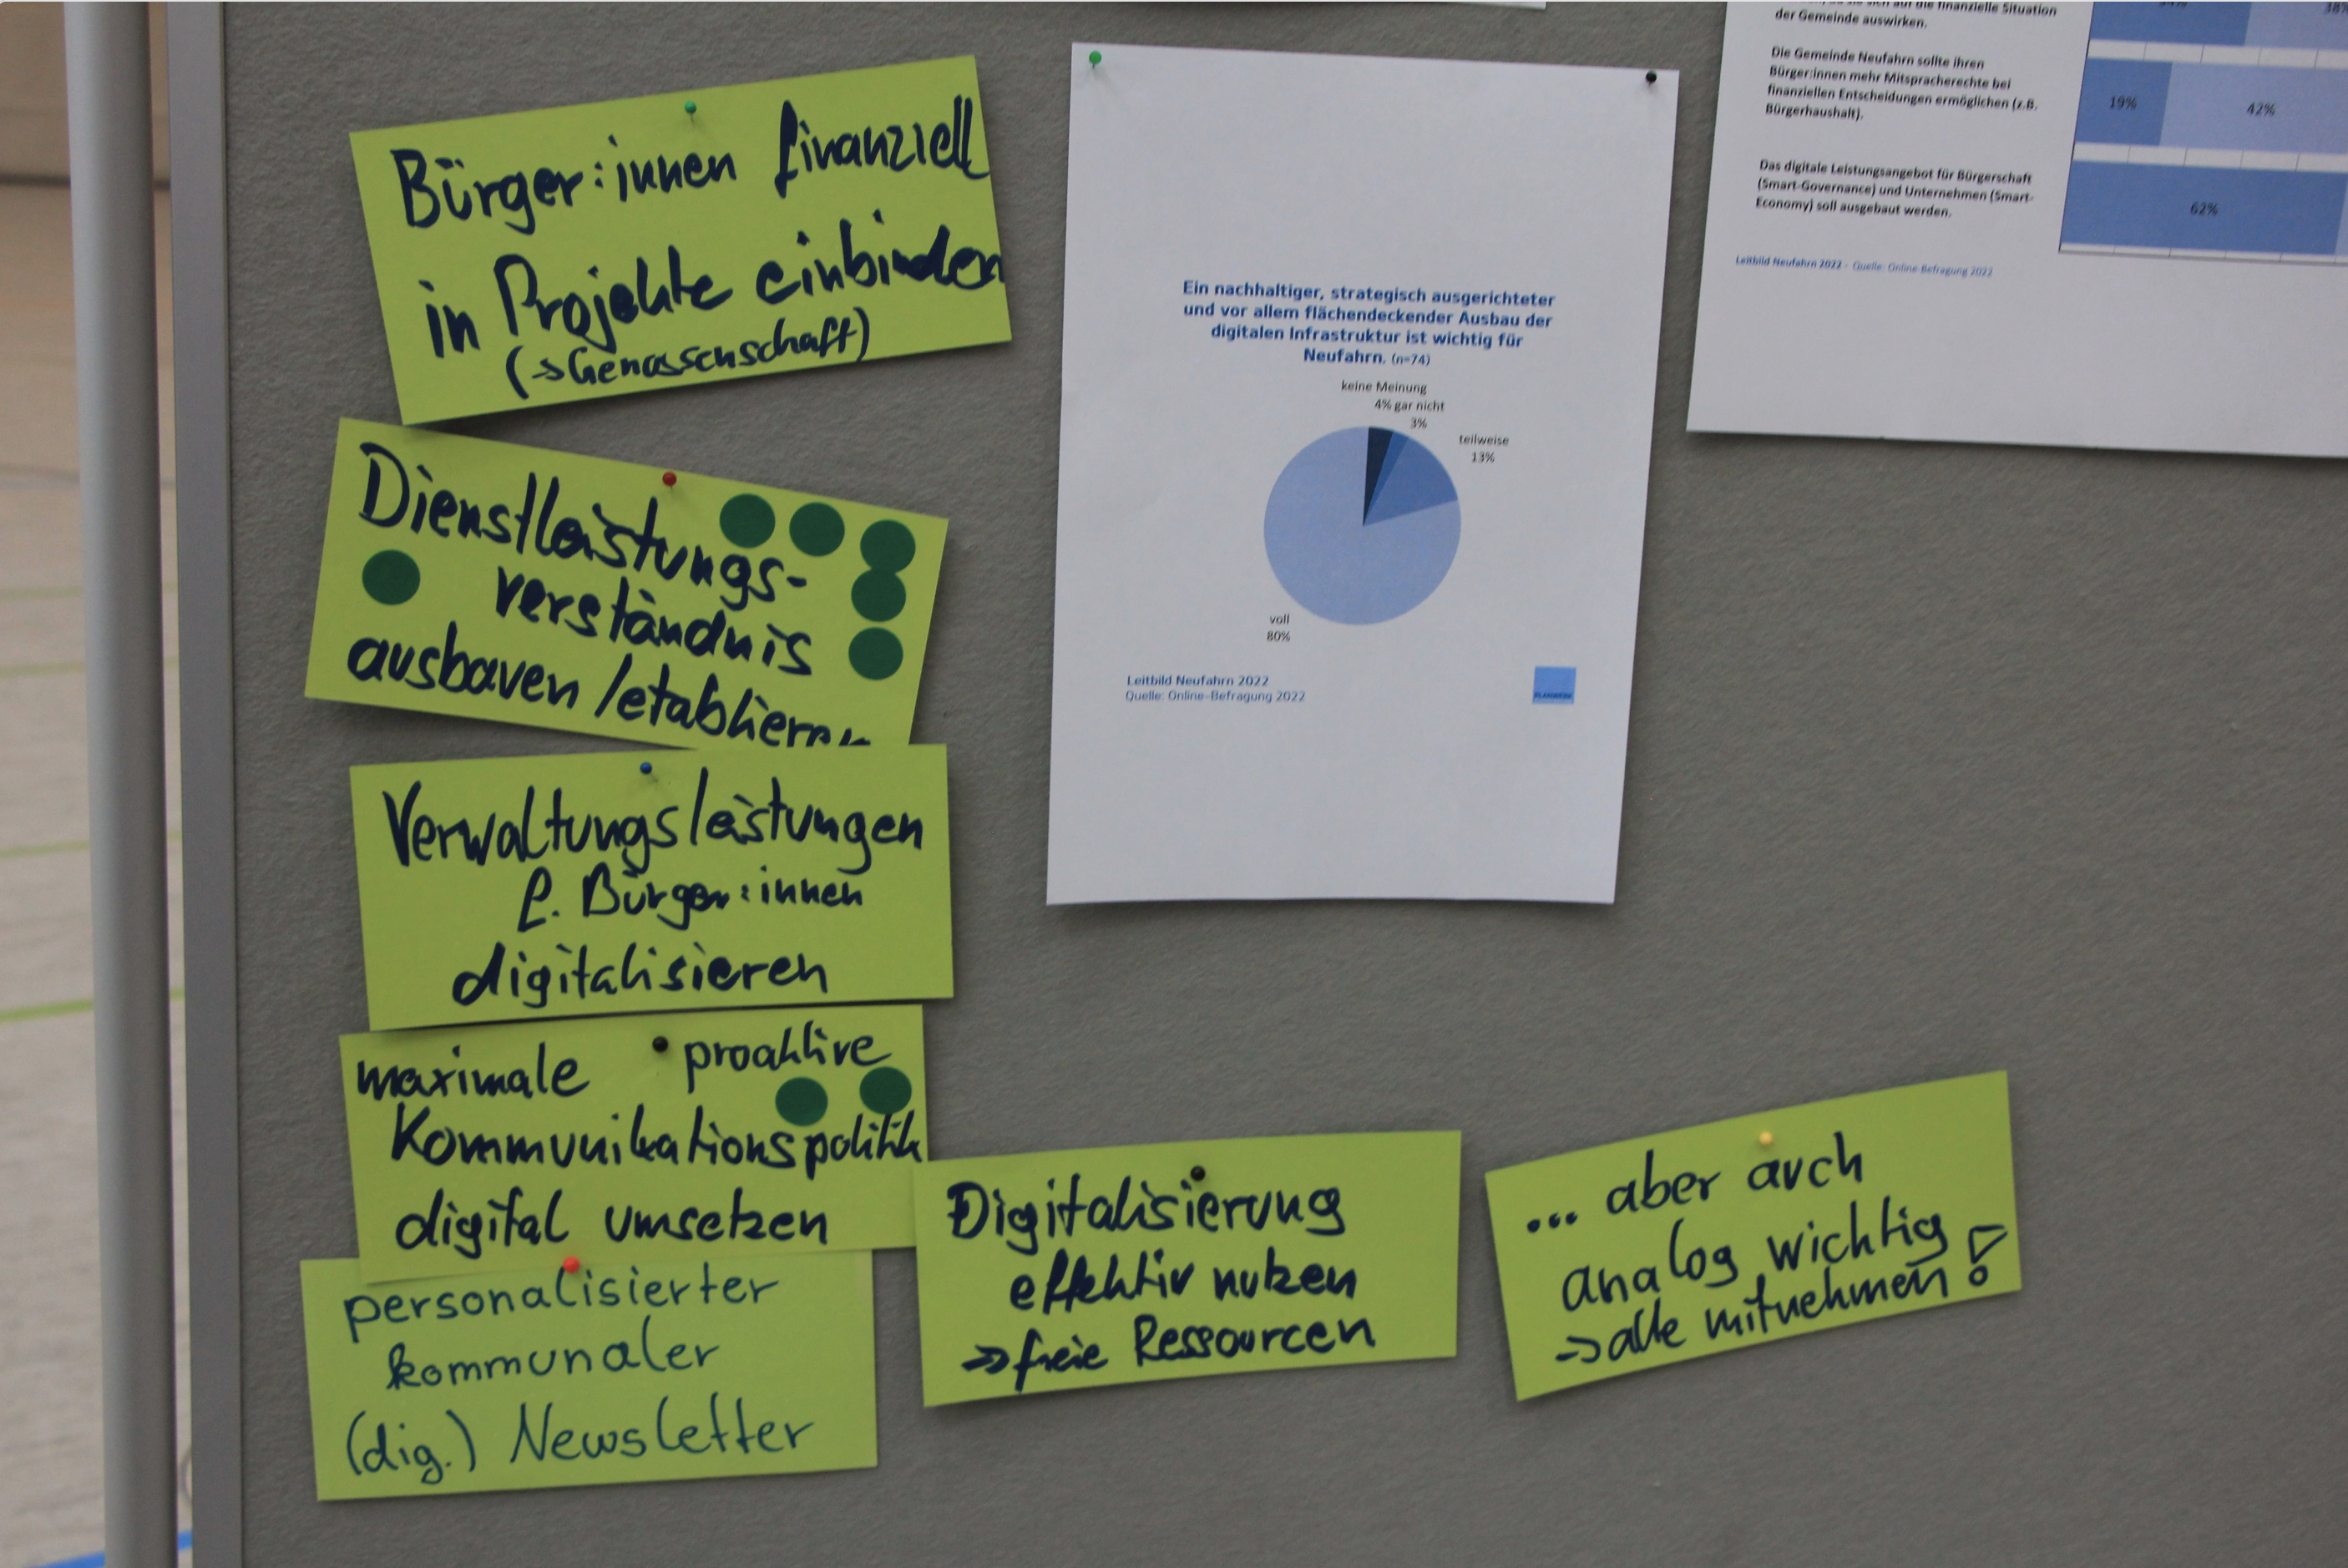 Bürger:innen finanziell
in Projekte einbinden
(→Genossenschaft)
Dienstleistungs-
verständnis
ausbauen /etablieren
Verwaltungsleistungen
f. Bürger:innen
digitalisieren
maximale proaktive
Kommunikationspolitik
digital umsetzen
personalisierter
kommunaler
(dig.) Newsletter
Digitalisierung
effektiv nutzen
→ freie Ressourcen
... aber auch
analog wichtig
→ alle mitnehmen!
Ein nachhaltiger, strategisch ausgerichteter
und vor allem flächendeckender Ausbau der
digitalen Infrastruktur ist wichtig für
Neufahrn. (n=74)
keine Meinung
4% gar nicht
3%
teilweise
13%
voll
80%
Leitbild Neufahrn 2022
Quelle: Online-Befragung 2022
PLANWERK
auf die finanzielle Situation
der Gemeinde auswirken.
38%
Die Gemeinde Neufahrn sollte ihren
Bürger:innen mehr Mitspracherechte bei
finanziellen Entscheidungen ermöglichen (z.B.
Bürgerhaushalt).
19% 42%
Das digitale Leistungsangebot für Bürgerschaft
(Smart-Governance) und Unternehmen (Smart-
Economy) soll ausgebaut werden.
62%
Leitbild Neufahrn 2022 - Quelle: Online-Befragung 2022